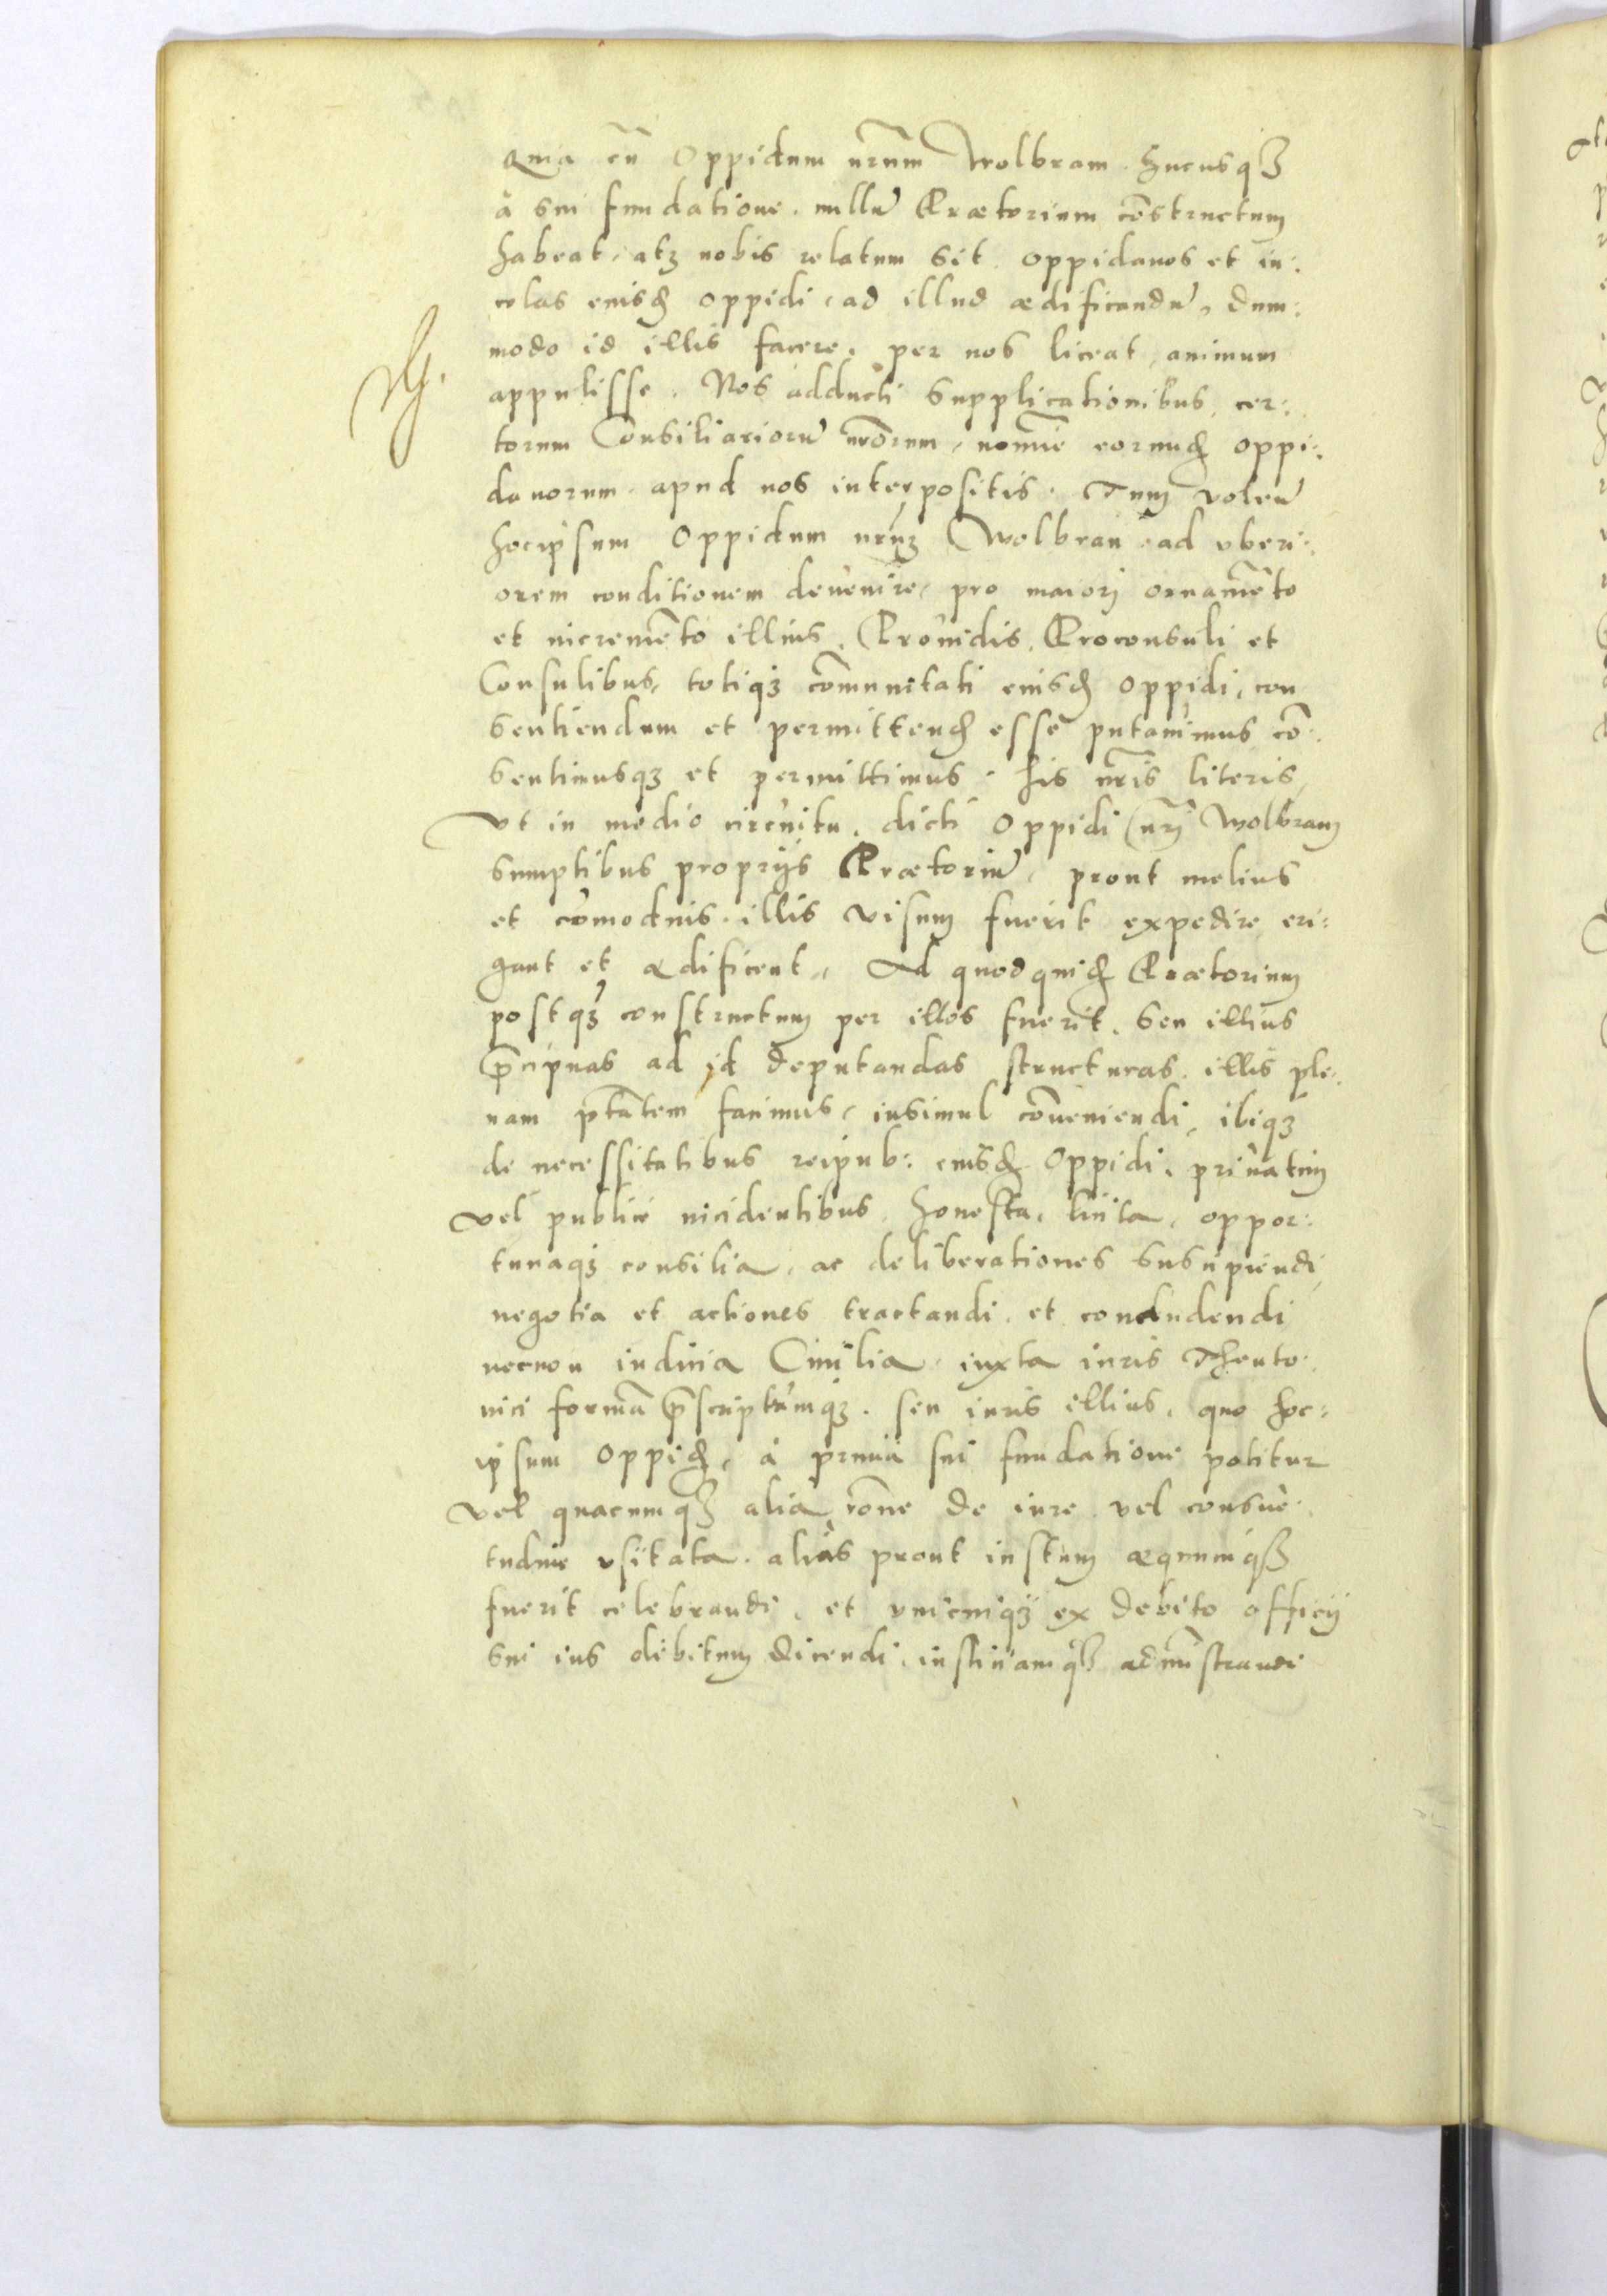 Quia cū Oppidum nr̄um Wolbram hucusqȝ
à sui fundatione. nullū Prætorium cōstructum
habeat, atqȝ nobis relatum sit. oppidanos et in:
colas eiusdē oppidi, ad illud ædificandū, dum:
modo id illis facere, per nos liceat, animum
appulisse. Nos adducti supplicationibus, cer:
torum Consiliariorū nr̄orum, nomīe eorundē oppi:
danorum. apud nos interpositis. Tum volen̄
hocipsum Oppidum nr̄uȝ Wolbram ad vberi:
orem conditionem deuenire, pro maiorj ornamēto
et incremēto illius, Prouidis, Proconsuli et
Consulibus, totiqȝ cōmunitati eiusdē oppidi, con
sentiendum et permittendē esse putauimus cō:
sentimusqȝ et permittimus. his nr̄is literis,
vt in medio circuitu, dicti Oppidi nr̄j Wolbram
sumptibus proprijs Prætoriū, prout melius
et cōmodius. illis visum fuerit expedire, eri:
gant et ædificent. Ad quod quidē Prætorium
postqȝ constructum per illos fuerit. seu illius
p̄cipuas ad id deputandas structuras. illis ple:
nam ptātem facimus, insimul cōueniendi, ibiqȝ
de necessitatibus reipub: eiusdē Oppidi. priuatim
vel publicè incidentibus, honesta, licita, oppor:
tunaqȝ consilia, ac deliberationes suscipiendi,
negotia et actiones tractandi, et concludendi
necnon iudicia Ciuilia, iuxta iuris Theuto:
nici formā p̄scriptumqȝ. seu iuris illius, quo hoc:
ipsum oppidē, à prima sui fundatione potitur
vel quacumqȝ alia, rōne de iure vel consue:
tudine vsitata. aliàs prout iustum æquumqȝ
fuerit celebrandi, et vnicuiqȝ ex debito officij
sui ius debitum dicendi, iustitiamqȝ admīstrandi